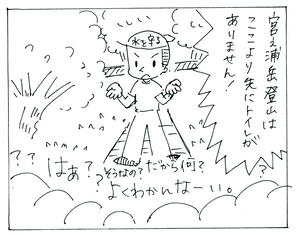 宮之浦岳登山は
ここより先にトイレが
ありません!
水を守る
? ? はぁ? ? そうなの? だから何? ? ?
よくわかんなーい。